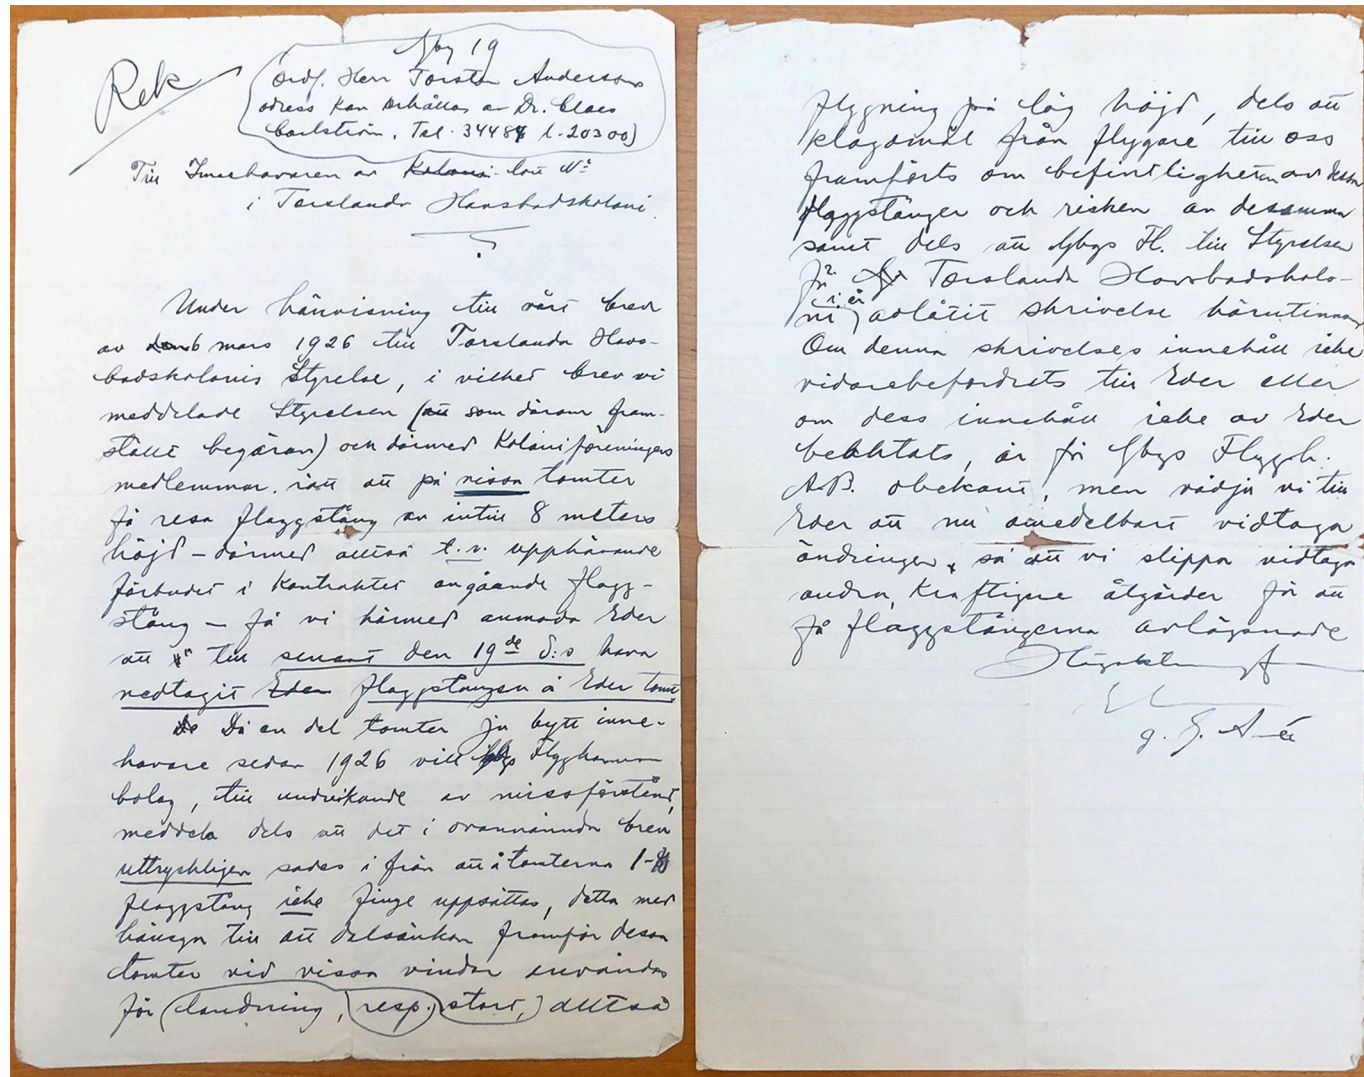 Rek
Gbg 19
Ordf. Herr Torsten Andersson
adress kan erhållas av Dr. Claes
Carlström, Tel. 34484 (-20300)
Till Innehavaren av Koloni-lott No
i Torslanda Havsbadskoloni.
Under hänvisning till vårt brev
av den 6 mars 1926 till Torslanda Havs-
badskolonis Styrelse, i vilket brev vi
meddelade Styrelsen (som därom fram-
ställt begäran) och därmed Koloniföreningens
medlemmar rätt att på vissa tomter
få resa flaggstång av intill 8 meters
höjd - därmed alltså t.v. upphävande
förbudet i kontraktet angående flagg-
stång - få vi härmed anmoda Eder
att till senast den 19de d:s hava
nedtagit Eder flaggstången å Eder tomt.
Då en del tomter ju bytt inne-
havare sedan 1926 vill Gbgs Flyghamns-
bolag, till undvikande av missförstånd,
meddela dels att det i ovannämnda brev
uttryckligen sades ifrån att å tomterna 1-
flaggstång icke finge uppsättas, detta med
hänsyn till att dalsänkan framför dessa
tomter vid vissa vindar användas
för (landning, resp. start,) alltså
flygning på låg höjd, dels att
klagomål från flygare till oss
framförts om befintligheten av dessa
flaggstänger och risken av desamma
samt dels att Gbgs Fl. till Styrelsen
för Torslanda Havsbadskolo-
ni i år avlåtit skrivelse härutinnan
Om denna skrivelses innehåll icke
vidarebefordrats till Eder eller
om dess innehåll icke av Eder
beaktats, är för Gbgs Flygh.
A.B. obekant, men vädja vi till
Eder att nu omedelbart vidtaga
ändringen, så att vi slippa vidtaga
andra, kraftigare åtgärder för att
få flaggstängerna avlägsnade
Högaktningsfullt
g. J.